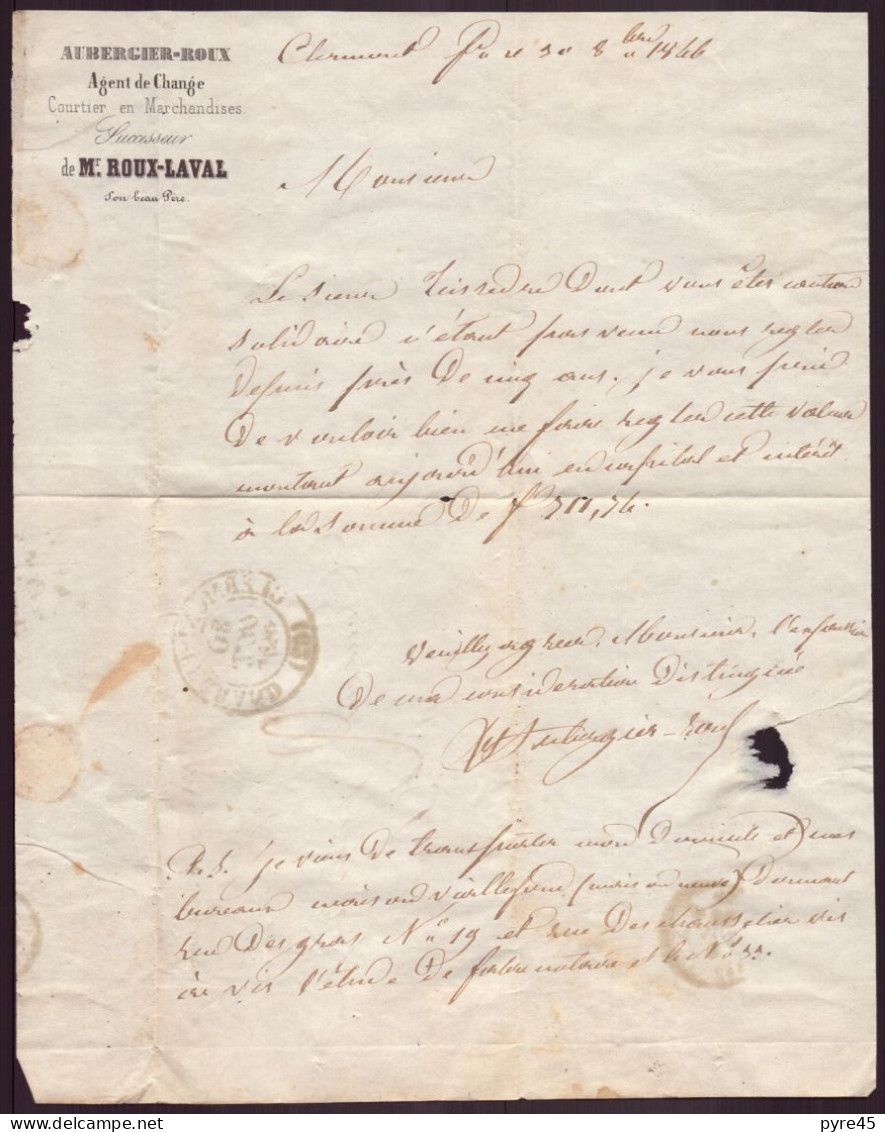 AUBERGIER-ROUX
Agent de Change
Courtier en Marchandises
Successeur
de Mr. ROUX-LAVAL
Son beau Père.
Clermont Fd le 30 8bre 1846
Monsieur
Le sieur Teissedre Dont vous êtes caution
Solidaire n'étant pas venu nous regler
Depuis près De cinq ans. je vous prie
De vouloir bien me faire regler cette valeur
montant aujourd'hui en capital et intérêt
à la Somme De f
Veuillez agréer, Monsieur, l'expression
De ma considération Distinguée
Aubergier-Roux
P.S. je viens De transporter mon Domicile et mes
bureaux maison (maison neuve) Donnant
rue Des gras No 19 et rue Des chaussetiers vis
à vis l'étude De notaire et le No 33.
CLERMONT-FERRAND (63)
30
OCT
pyre45